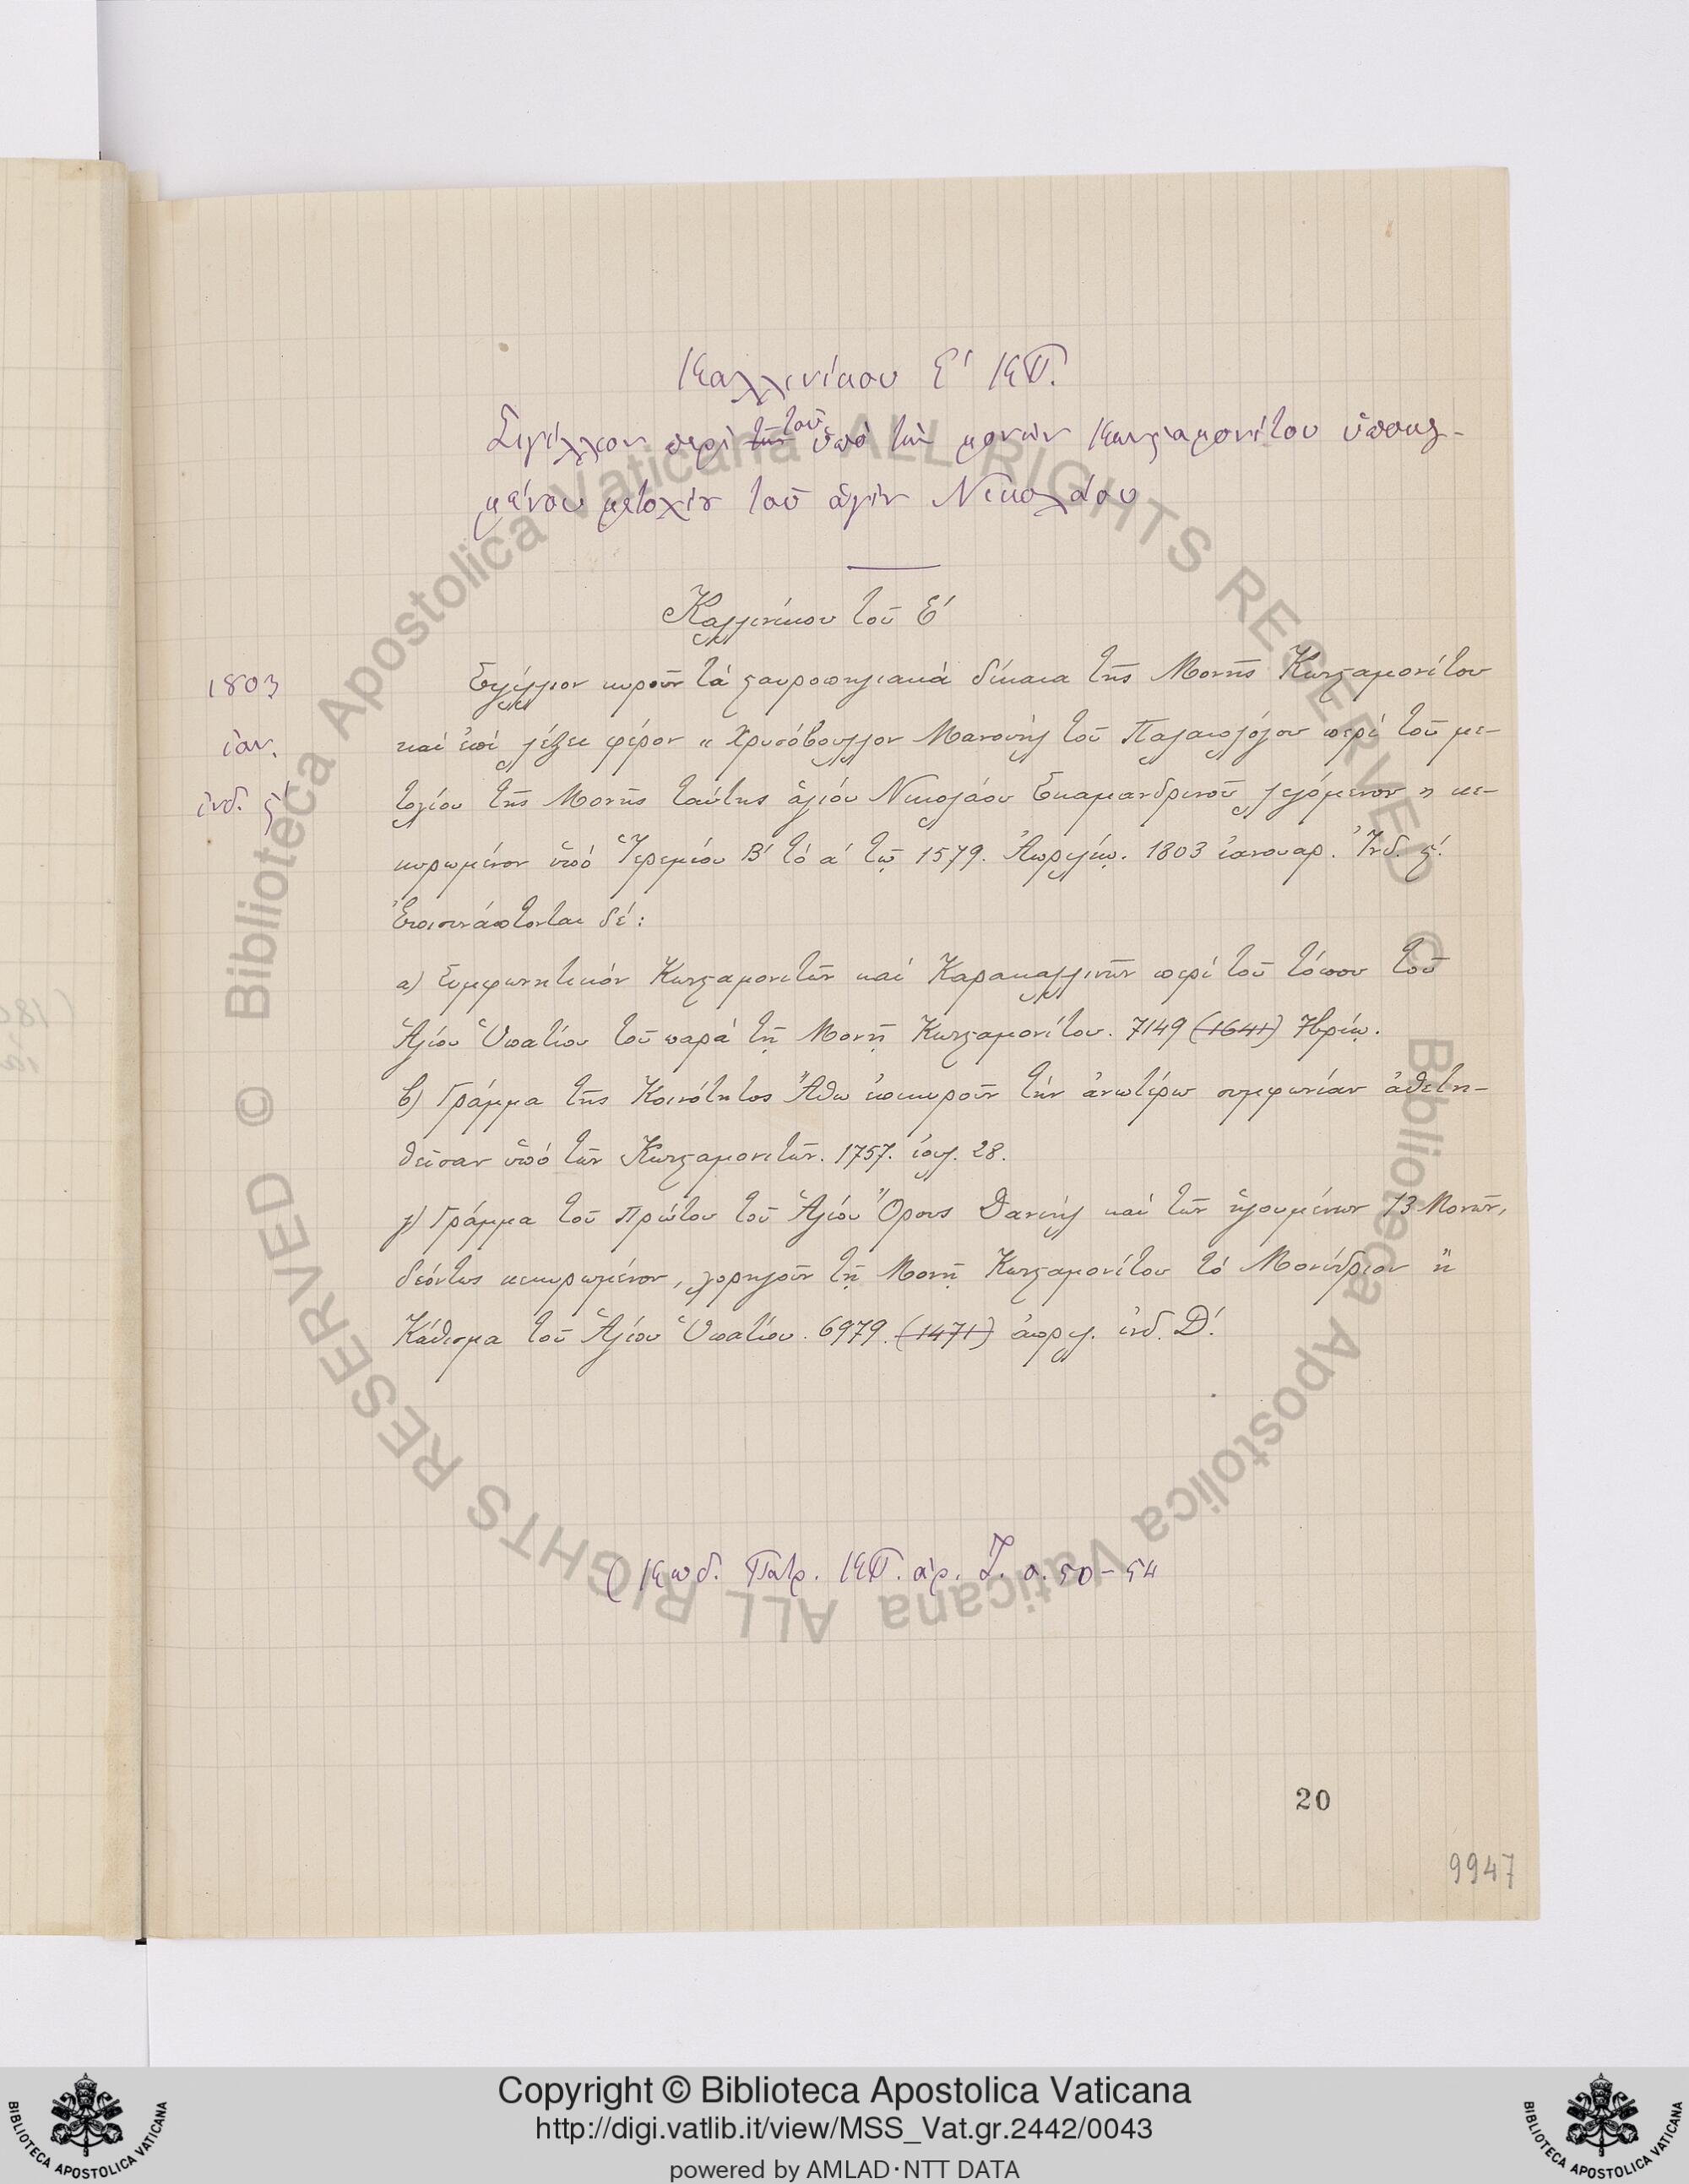 Καλλινίκου Ε' ΚΠ.
Σιγίλλιον περὶ τῆς τοῦ ὑπὸ τὴν μονὴν Κωνσταμονίτου ὑποκει-
μένου μετοχίου τοῦ ἁγίου Νικολάου
Καλλινίκου τοῦ Ε'
1803
ἰαν.
ἰνδ. ϛ'
Σιγίλλιον κυροῦν τὰ ϛαυροπηγιακά δίκαια τῆς Μονῆς Κωνϛαμονίτου
καί ἐπί λέξει φέρον „ Χρυσόβουλλον Μανουήλ τοῦ Παλαιολόγου περί τοῦ με-
τοχίου τῆς Μονῆς ταύτης ἁγίου Νικολάου Σκαμανδρινοῦ λεγόμενον „ κε-
κυρωμένον ὑπό Ἱερεμίου Β' τό α' τῷ 1579. Ἀπριλίῳ. 1803 ἰανουαρ. Ἰνδ. ϛ'.
Ἐπισυνάπτονται δέ:
α) Συμφωνητικόν Κωνϛαμονιτῶν καί Καρακαλληνῶν περί τοῦ τόπου τοῦ
Ἁγίου Ὑπατίου τοῦ παρά τῇ Μονῇ Κωνϛαμονίτου. 7149 (1641) 7βρίῳ.
β) Γράμμα τῆς Κοινότητος Ἄθω ἐπικυροῦν τήν ἀνωτέρω συμφωνίαν ἀθετη-
θεῖσαν ὑπό τῶν Κωνϛαμονιτῶν. 1757. ἰουλ. 28.
γ) Γράμμα τοῦ Πρώτου τοῦ Ἁγίου Ὄρους Δανιήλ καί τῶν ἡγουμένων 13 Μονῶν,
δεόντως κεκυρωμένον, χορηγοῦν τῇ Μονῇ Κωνϛαμονίτου τό Μονύδριον ἤ
Κάθισμα τοῦ Ἁγίου Ὑπατίου. 6979. (1471) ἀπριλ. ἰνδ. Δ'.
(Κωδ. Πατρ. ΚΠ. ἀρ. Ζ. σ. 50-54
20
9947
Copyright © Biblioteca Apostolica Vaticana
http://digi.vatlib.it/view/MSS_Vat.gr.2442/0043
powered by AMLAD·NTT DATA
BIBLIOTECA APOSTOLICA VATICANA
BIBLIOTECA APOSTOLICA VATICANA
© Biblioteca Apostolica Vaticana ALL RIGHTS RESERVED
© Biblioteca Apostolica Vaticana ALL RIGHTS RESERVED